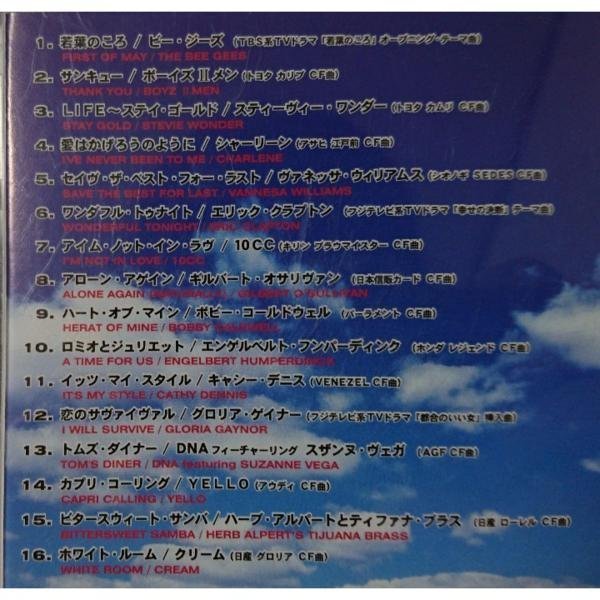 1. 若葉のころ / ビー・ジーズ (TBS系TVドラマ「若葉のころ」オープニング・テーマ曲)
FIRST OF MAY / THE BEE GEES
2. サンキュー / ボーイズⅡメン (トヨタ カリブ CF曲)
THANK YOU / BOYZ ⅡMEN
3. LIFE～ステイ・ゴールド / スティーヴィー・ワンダー (トヨタ カムリ CF曲)
STAY GOLD / STEVIE WONDER
4. 愛はかげろうのように / シャーリーン (アサヒ 江戸前 CF曲)
I'VE NEVER BEEN TO ME / CHARLENE
5. セイヴ・ザ・ベスト・フォー・ラスト / ヴァネッサ・ウィリアムス (シオノギ SEDES CF曲)
SAVE THE BEST FOR LAST / VANNESA WILLIAMS
6. ワンダフル・トゥナイト / エリック・クラプトン (フジテレビ系TVドラマ「幸せの決断」テーマ曲)
WONDERFUL TONIGHT / ERIC CLAPTON
7. アイム・ノット・イン・ラヴ / 10CC (キリン ブラウマイスター CF曲)
I'M NOT IN LOVE / 10CC
8. アローン・アゲイン / ギルバート・オサリヴァン (日本信販カード CF曲)
ALONE AGAIN (NATURALLY) / GILBERT O'SULLIVAN
9. ハート・オブ・マイン / ボビー・コールドウェル (パーラメント CF曲)
HERAT OF MINE / BOBBY CALDWELL
10. ロミオとジュリエット / エンゲルベルト・フンパーディンク (ホンダ レジェンド CF曲)
A TIME FOR US / ENGELBERT HUMPERDINCK
11. イッツ・マイ・スタイル / キャシー・デニス (VENEZEL CF曲)
IT'S MY STYLE / CATHY DENNIS
12. 恋のサヴァイヴァル / グロリア・ゲイナー (フジテレビ系TVドラマ「都合のいい女」挿入曲)
I WILL SURVIVE / GLORIA GAYNOR
13. トムズ・ダイナー / DNA フィーチャーリング スザンヌ・ヴェガ (AGF CF曲)
TOM'S DINER / DNA featuring SUZANNE VEGA
14. カプリ・コーリング / YELLO (アウディ CF曲)
CAPRI CALLING / YELLO
15. ビタースウィート・サンバ / ハーブ・アルパートとティファナ・ブラス (日産 ローレル CF曲)
BITTERSWEET SAMBA / HERB ALPERT'S TIJUANA BRASS
16. ホワイト・ルーム / クリーム (日産 グロリア CF曲)
WHITE ROOM / CREAM